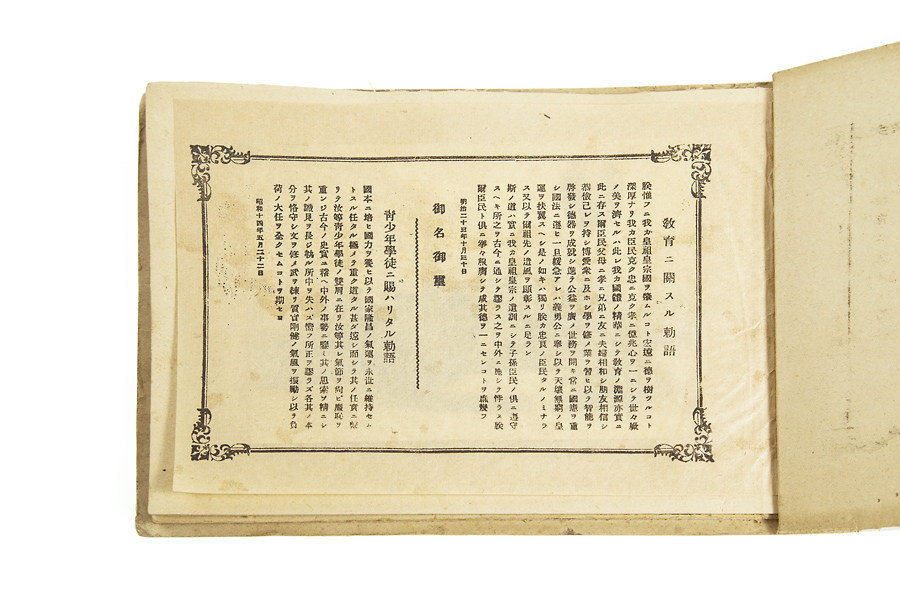 教育ニ關スル勅語
朕惟フニ我カ皇祖皇宗國ヲ肇ムルコト宏遠ニ德ヲ樹ツルコト
深厚ナリ我カ臣民克ク忠ニ克ク孝ニ億兆心ヲ一ニシテ世々厥
ノ美ヲ濟セルハ此レ我カ國體ノ精華ニシテ敎育ノ淵源亦實ニ
此ニ存ス爾臣民父母ニ孝ニ兄弟ニ友ニ夫婦相和シ朋友相信シ
恭儉己レヲ持シ博愛衆ニ及ホシ學ヲ修メ業ヲ習ヒ以テ智能ヲ
啓發シ德器ヲ成就シ進テ公益ヲ廣メ世務ヲ開キ常ニ國憲ヲ重
シ國法ニ遵ヒ一旦緩急アレハ義勇公ニ奉シ以テ天壤無窮ノ皇
運ヲ扶翼スヘシ是ノ如キハ獨リ朕カ忠良ノ臣民タルノミナラ
ス又以テ爾祖先ノ遺風ヲ顯彰スルニ足ラン
斯ノ道ハ實ニ我カ皇祖皇宗ノ遺訓ニシテ子孫臣民ノ俱ニ遵守
スヘキ所之ヲ古今ニ通シテ謬ラス之ヲ中外ニ施シテ悖ラス朕
爾臣民ト俱ニ拳々服膺シテ咸其德ヲ一ニセンコトヲ庶幾フ
明治二十三年十月三十日
御名御璽
靑少年學徒ニ賜ハリタル勅語
國本ニ培ヒ國力ヲ養ヒ以テ國家隆昌ノ氣運ヲ永世ニ維持セム
トスル任タル極メテ重ク道タル甚ダ遠シ而シテ其ノ任實ニ繫
リテ汝等靑少年學徒ノ雙肩ニ在リ汝等其レ氣節ヲ尙ビ廉恥ヲ
重ンジ古今ノ史實ニ稽ヘ中外ノ事勢ニ鑒ミ其ノ思索ヲ精ニシ
其ノ識見ヲ長ジ執ル所中ヲ失ハズ嚮フ所正ヲ謬ラズ各其ノ本
分ヲ恪守シ文ヲ修メ武ヲ練リ質實剛健ノ氣風ヲ振勵シ以テ負
荷ノ大任ヲ全クセムコトヲ期セヨ
昭和十四年五月二十二日